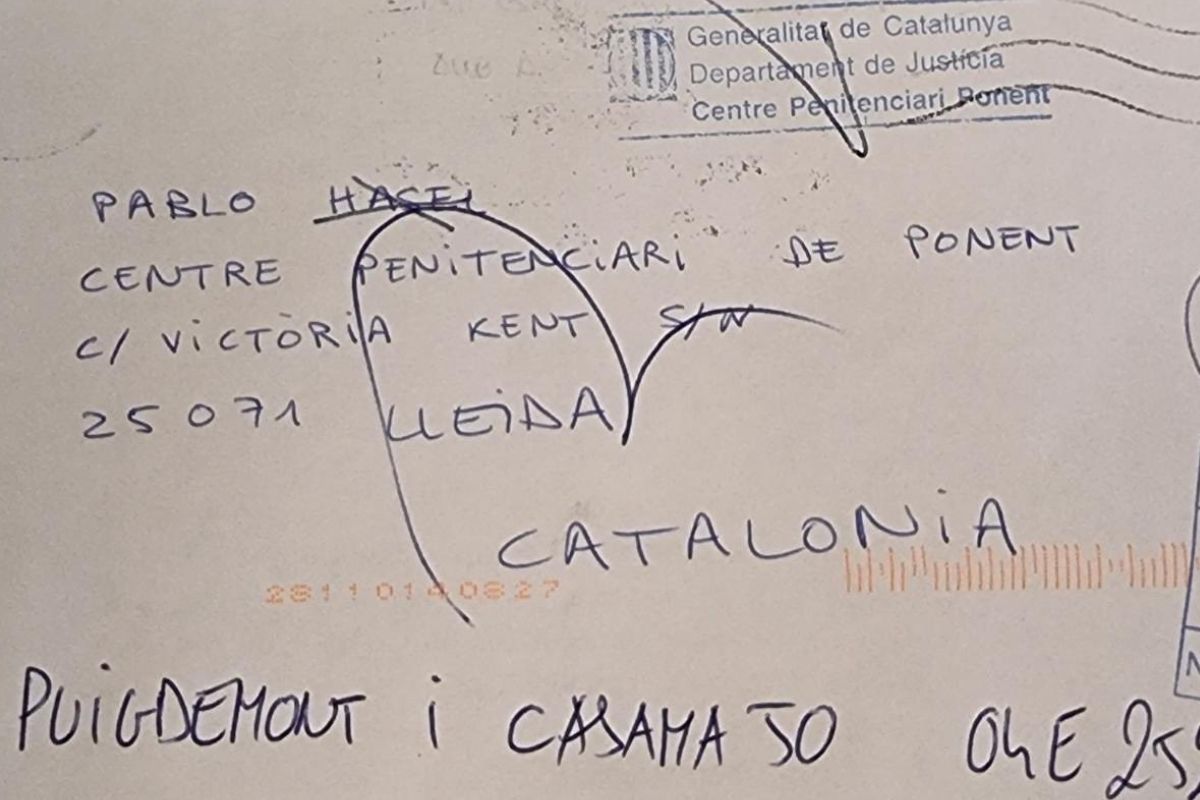 Generalitat de Catalunya
Departament de Justícia
Centre Penitenciari Ponent
PABLO HASEL
CENTRE PENiTENCiARi DE PONENT
C/ ViCTÒRiA KENT S/N
25071 LLEiDA
CATALONiA
28110140827
PUiGDEMONT i CASAMAJO 04E 25